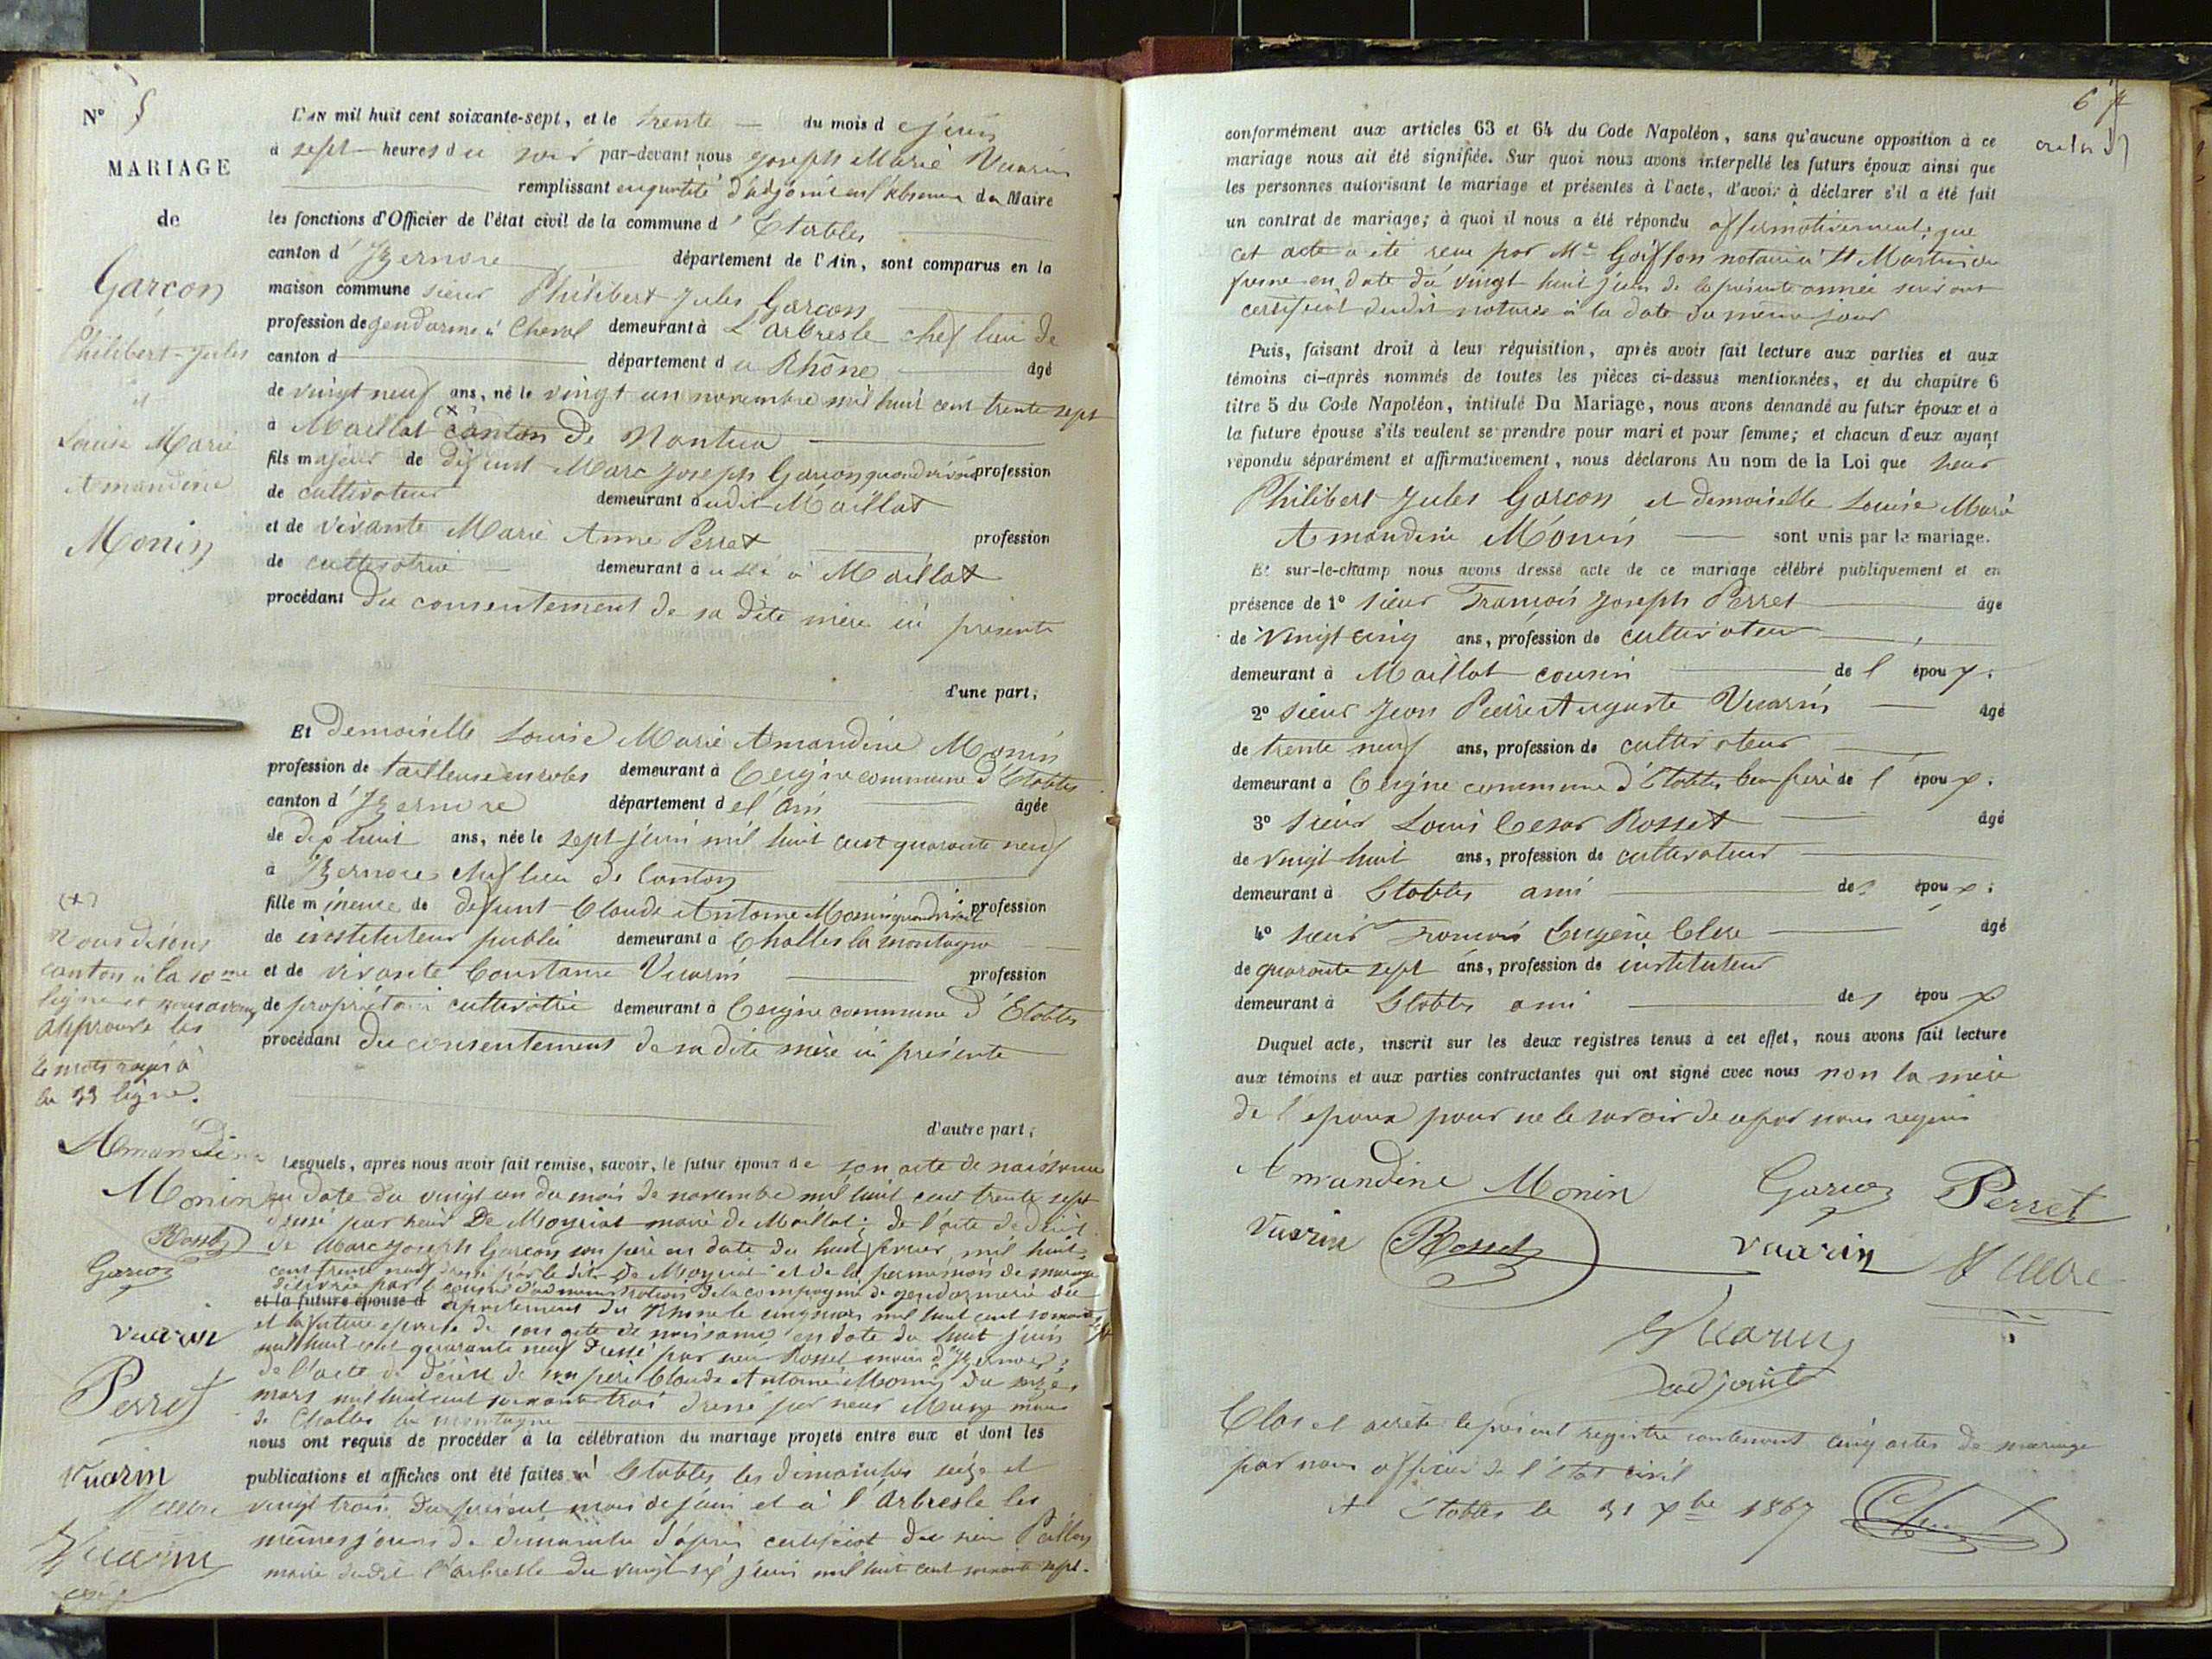 N° 5
MARIAGE
de
Garçon
Philibert-Jules
et
Louise Marie
Amandine
Monin
L'AN mil huit cent soixante-sept, et le trente du mois de juin
à sept heures du soir par-devant nous Joseph Marie Vuarin
remplissant en qualité d'adjoint en l'absence du Maire
les fonctions d'Officier de l'état civil de la commune d'Etables
canton d'Izernore département de l'Ain, sont comparus en la
maison commune sieur Philibert Jules Garçon
profession de gendarme à cheval demeurant à L'arbresle chef lieu de
canton d département du Rhône âgé
de vingt neuf ans, né le vingt un novembre mil huit cent trente sept
à Maillat (x) canton de Nantua
fils majeur de défunt Marc Joseph Garçon quand vivait profession
de cultivateur demeurant audit Maillat
et de vivante Marie Anne Perret profession
de cultivatrice demeurant à Maillat
procédant du consentement de sa dite mère ici présente
d'une part,
Et demoiselle Louise Marie Amandine Monin
profession de tailleuse en robes demeurant à Ceigne commune d'Etables
canton d'Izernore département de l'Ain âgée
de dix huit ans, née le sept juin mil huit cent quarante neuf
à Izernore chef lieu de Canton
fille mineure de défunt Claude Antoine Monin quand vivait profession
de instituteur public demeurant à Challes la montagne
et de vivante Constance Vuarin profession
de propriétaire cultivatrice demeurant à Ceigne commune d'Etables
procédant du consentement de sa dite mère ici présente
d'autre part,
(x)
Nous disons
canton à la 10me
ligne et nous avons
approuvé les
6 mots rayés à
la 33 ligne.
Amandine
Monin
Rosset
Garcon
vuarin
Perret
Vuarin
Vuarin
Lesquels, après nous avoir fait remise, savoir, le futur époux de son acte de naissance
en date du vingt un du mois de novembre mil huit cent trente sept
dressé par sieur De Moyriat maire de Maillat; de l'acte de décès
de Marc Joseph Garçon son père en date du huit février mil huit
cent trente neuf dressé par le dit De Moyriat et de la permission de mariage
délivrée par le conseil d'administration de la compagnie de gendarmerie du
et la future épouse d département du Rhône le cinq mars mil huit cent soixante sept
et la future épouse de son acte de naissance en date du huit juin
mil huit cent quarante neuf dressé par sieur Rosset maire d'Izernore;
de l'acte de décès de son père Claude Antoine Monin du
mars mil huit cent soixante trois dressé par sieur maire
de Challes la montagne
nous ont requis de procéder à la célébration du mariage projeté entre eux et dont les
publications et affiches ont été faites à Etables les dimanches seize et
vingt trois du présent mois de juin et à l'Arbresle les
mêmes jours de dimanche d'après certificat du sieur
maire dudit l'arbresle du vingt six juin mil huit cent soixante sept.
6
conformément aux articles 63 et 64 du Code Napoléon, sans qu'aucune opposition à ce
mariage nous ait été signifiée. Sur quoi nous avons interpellé les futurs époux ainsi que
les personnes autorisant le mariage et présentes à l'acte, d'avoir à déclarer s'il a été fait
un contrat de mariage; à quoi il nous a été répondu affirmativement, que
cet acte a été reçu par Me Goiffon notaire à St Martin du
fresne en date du vingt huit juin de la présente année suivant
certificat dudit notaire à la date du même jour
Puis, faisant droit à leur réquisition, après avoir fait lecture aux parties et aux
témoins ci-après nommés de toutes les pièces ci-dessus mentionnées, et du chapitre 6
titre 5 du Code Napoléon, intitulé Du Mariage, nous avons demandé au futur époux et à
la future épouse s'ils veulent se prendre pour mari et pour femme; et chacun d'eux ayant
répondu séparément et affirmativement, nous déclarons Au nom de la Loi que sieur
Philibert Jules Garçon et demoiselle Louise Marie
Amandine Monin sont unis par le mariage.
Et sur-le-champ nous avons dressé acte de ce mariage célébré publiquement et en
présence de 1° sieur François Joseph Perret âgé
de vingt cinq ans, profession de cultivateur
demeurant à Maillat cousin de l'époux.
2° sieur Jean Pierre Auguste Vuarin âgé
de trente neuf ans, profession de cultivateur
demeurant à Ceigne commune d'Etables beau frère de l'époux.
3° sieur Louis Cesar Rosset âgé
de vingt huit ans, profession de cultivateur
demeurant à Etables ami des époux.
4° sieur François Eugène Clere âgé
de quarante sept ans, profession de instituteur
demeurant à Etables ami des époux
Duquel acte, inscrit sur les deux registres tenus à cet effet, nous avons fait lecture
aux témoins et aux parties contractantes qui ont signé avec nous non la mère
de l'époux pour ne le savoir de ce par nous requis
Amandine Monin Garcon Perret
Vuarin Rosset vuarin
Vuarin
adjoint
Clos et arrêté le présent registre contenant cinq actes de mariage
par nous officier de l'état civil
A Etables le 31 Xbre 1867